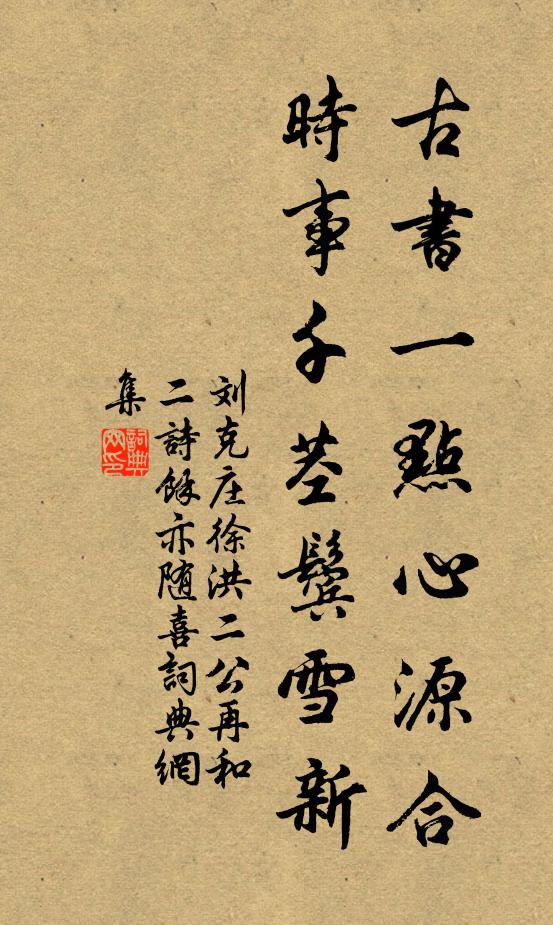 古書一點心源合
時事千莖鬢雪新
刘克庄徐洪二公再和
二詩餘亦随喜詞典網
集
詞典網印